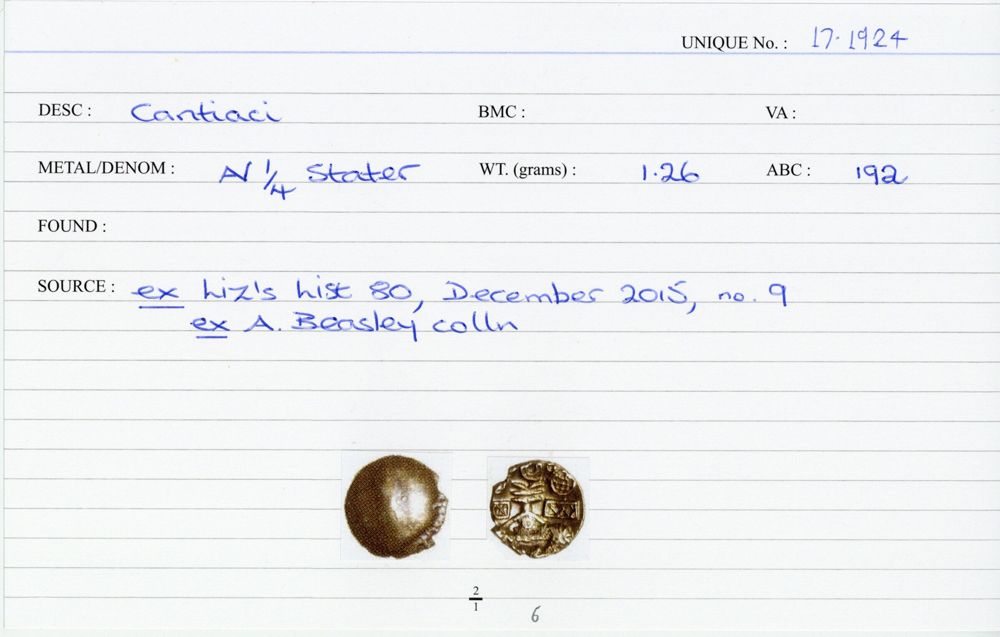 UNIQUE No. : 17.1924
DESC : Cantiaci BMC : VA :
METAL/DENOM : AV 1/4 Stater WT. (grams) : 1.26 ABC : 192
FOUND :
SOURCE : ex Liz's List 80, December 2015, no. 9
ex A. Beasley colln
2/1
6